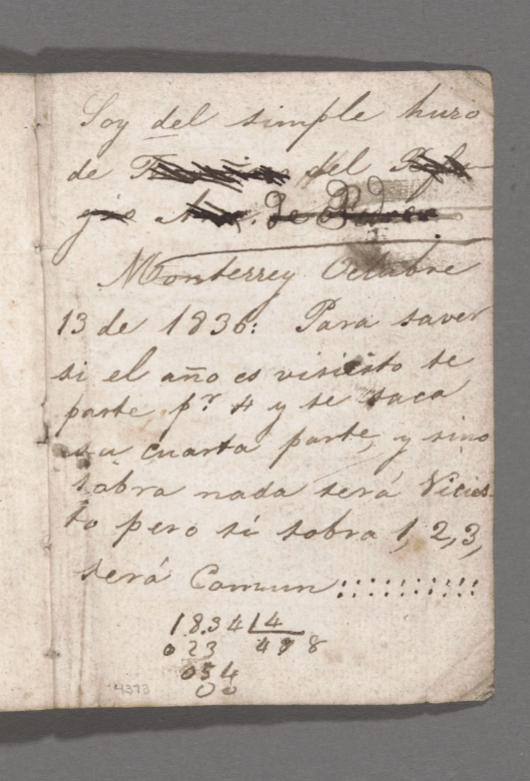 Soy del simple huso
de del
Monterrey Octubre
13 de 1836: Para saver
si el año es visiesto se
parte p.r 4 y se saca
su cuarta parte, y sino
sobra nada será Vicies-
to pero si sobra 1, 2, 3,
será Comun::::::::::
1834 4
023 478
054
00
4373